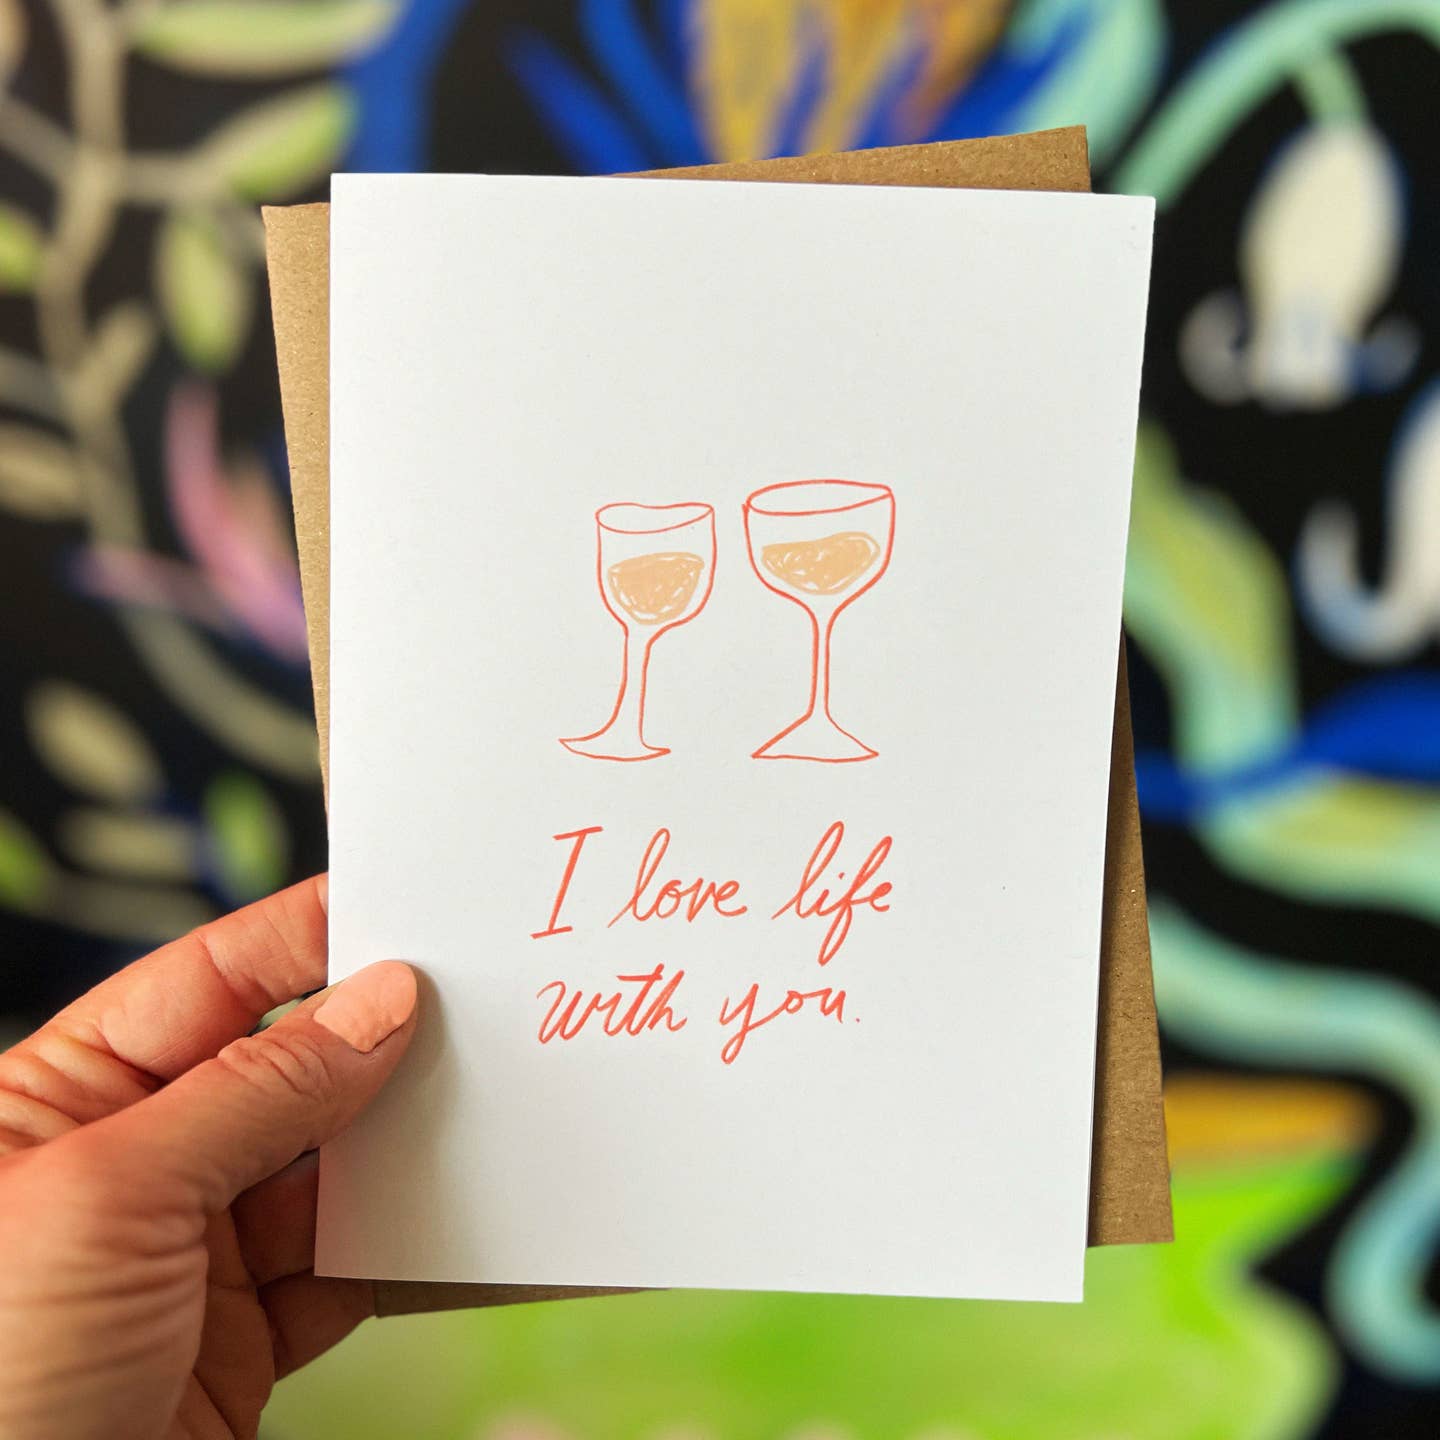 I love life
with you.